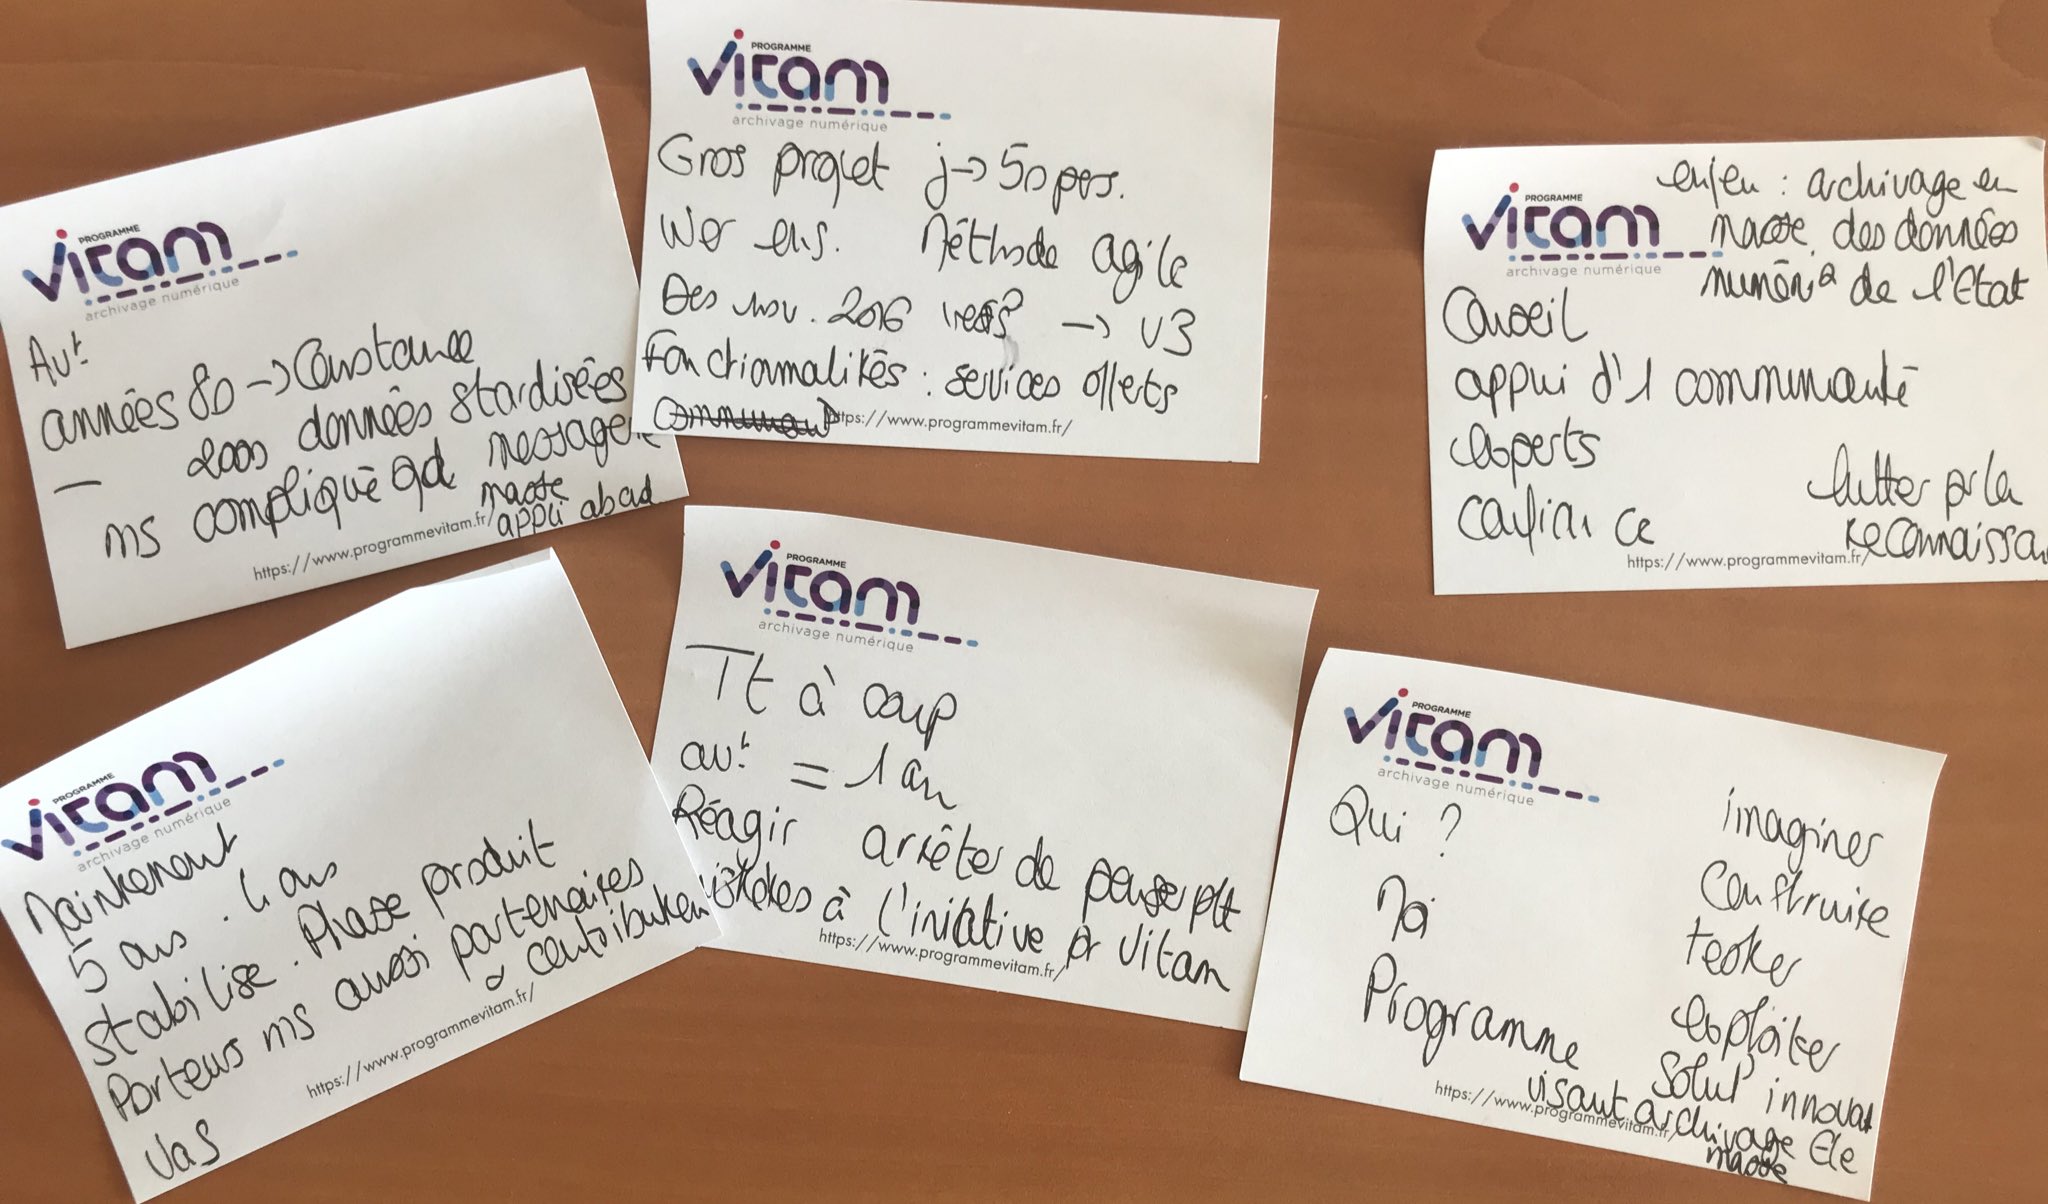 PROGRAMME
vitam
archivage numérique
Avt
années 80 -> Constance
— 2000 données stardisées
ms compliqué qd messagerie
masse
appli abad
https://www.programmevitam.fr/
PROGRAMME
vitam
archivage numérique
Gros projet j-> 50 pers.
Wer ens. Méthode agile
Des nov. 2016 -> V3
Fonctionnalités : services offerts
https://www.programmevitam.fr/
PROGRAMME
vitam
archivage numérique
enjeu : archivage en
masse des données
de l'Etat
Conseil
appui d'1 communauté
experts
confiance
lutter pr la
reconnaissan
https://www.programmevitam.fr/
PROGRAMME
vitam
archivage numérique
Maintenant
5 ans . 4 ans
stabilise . Phase produit
Porteurs ms aussi partenaires
contributeu
https://www.programmevitam.fr/
Vas
PROGRAMME
vitam
archivage numérique
Tt à coup
avt = 1 an
Réagir arrêter de penser
à l'iniative pr Vitam
https://www.programmevitam.fr/
PROGRAMME
vitam
archivage numérique
Qui ?
Moi
Programme
imaginer
construire
tester
exploiter
solut° innovat
visant archivage Ele
masse
https://www.programmevitam.fr/